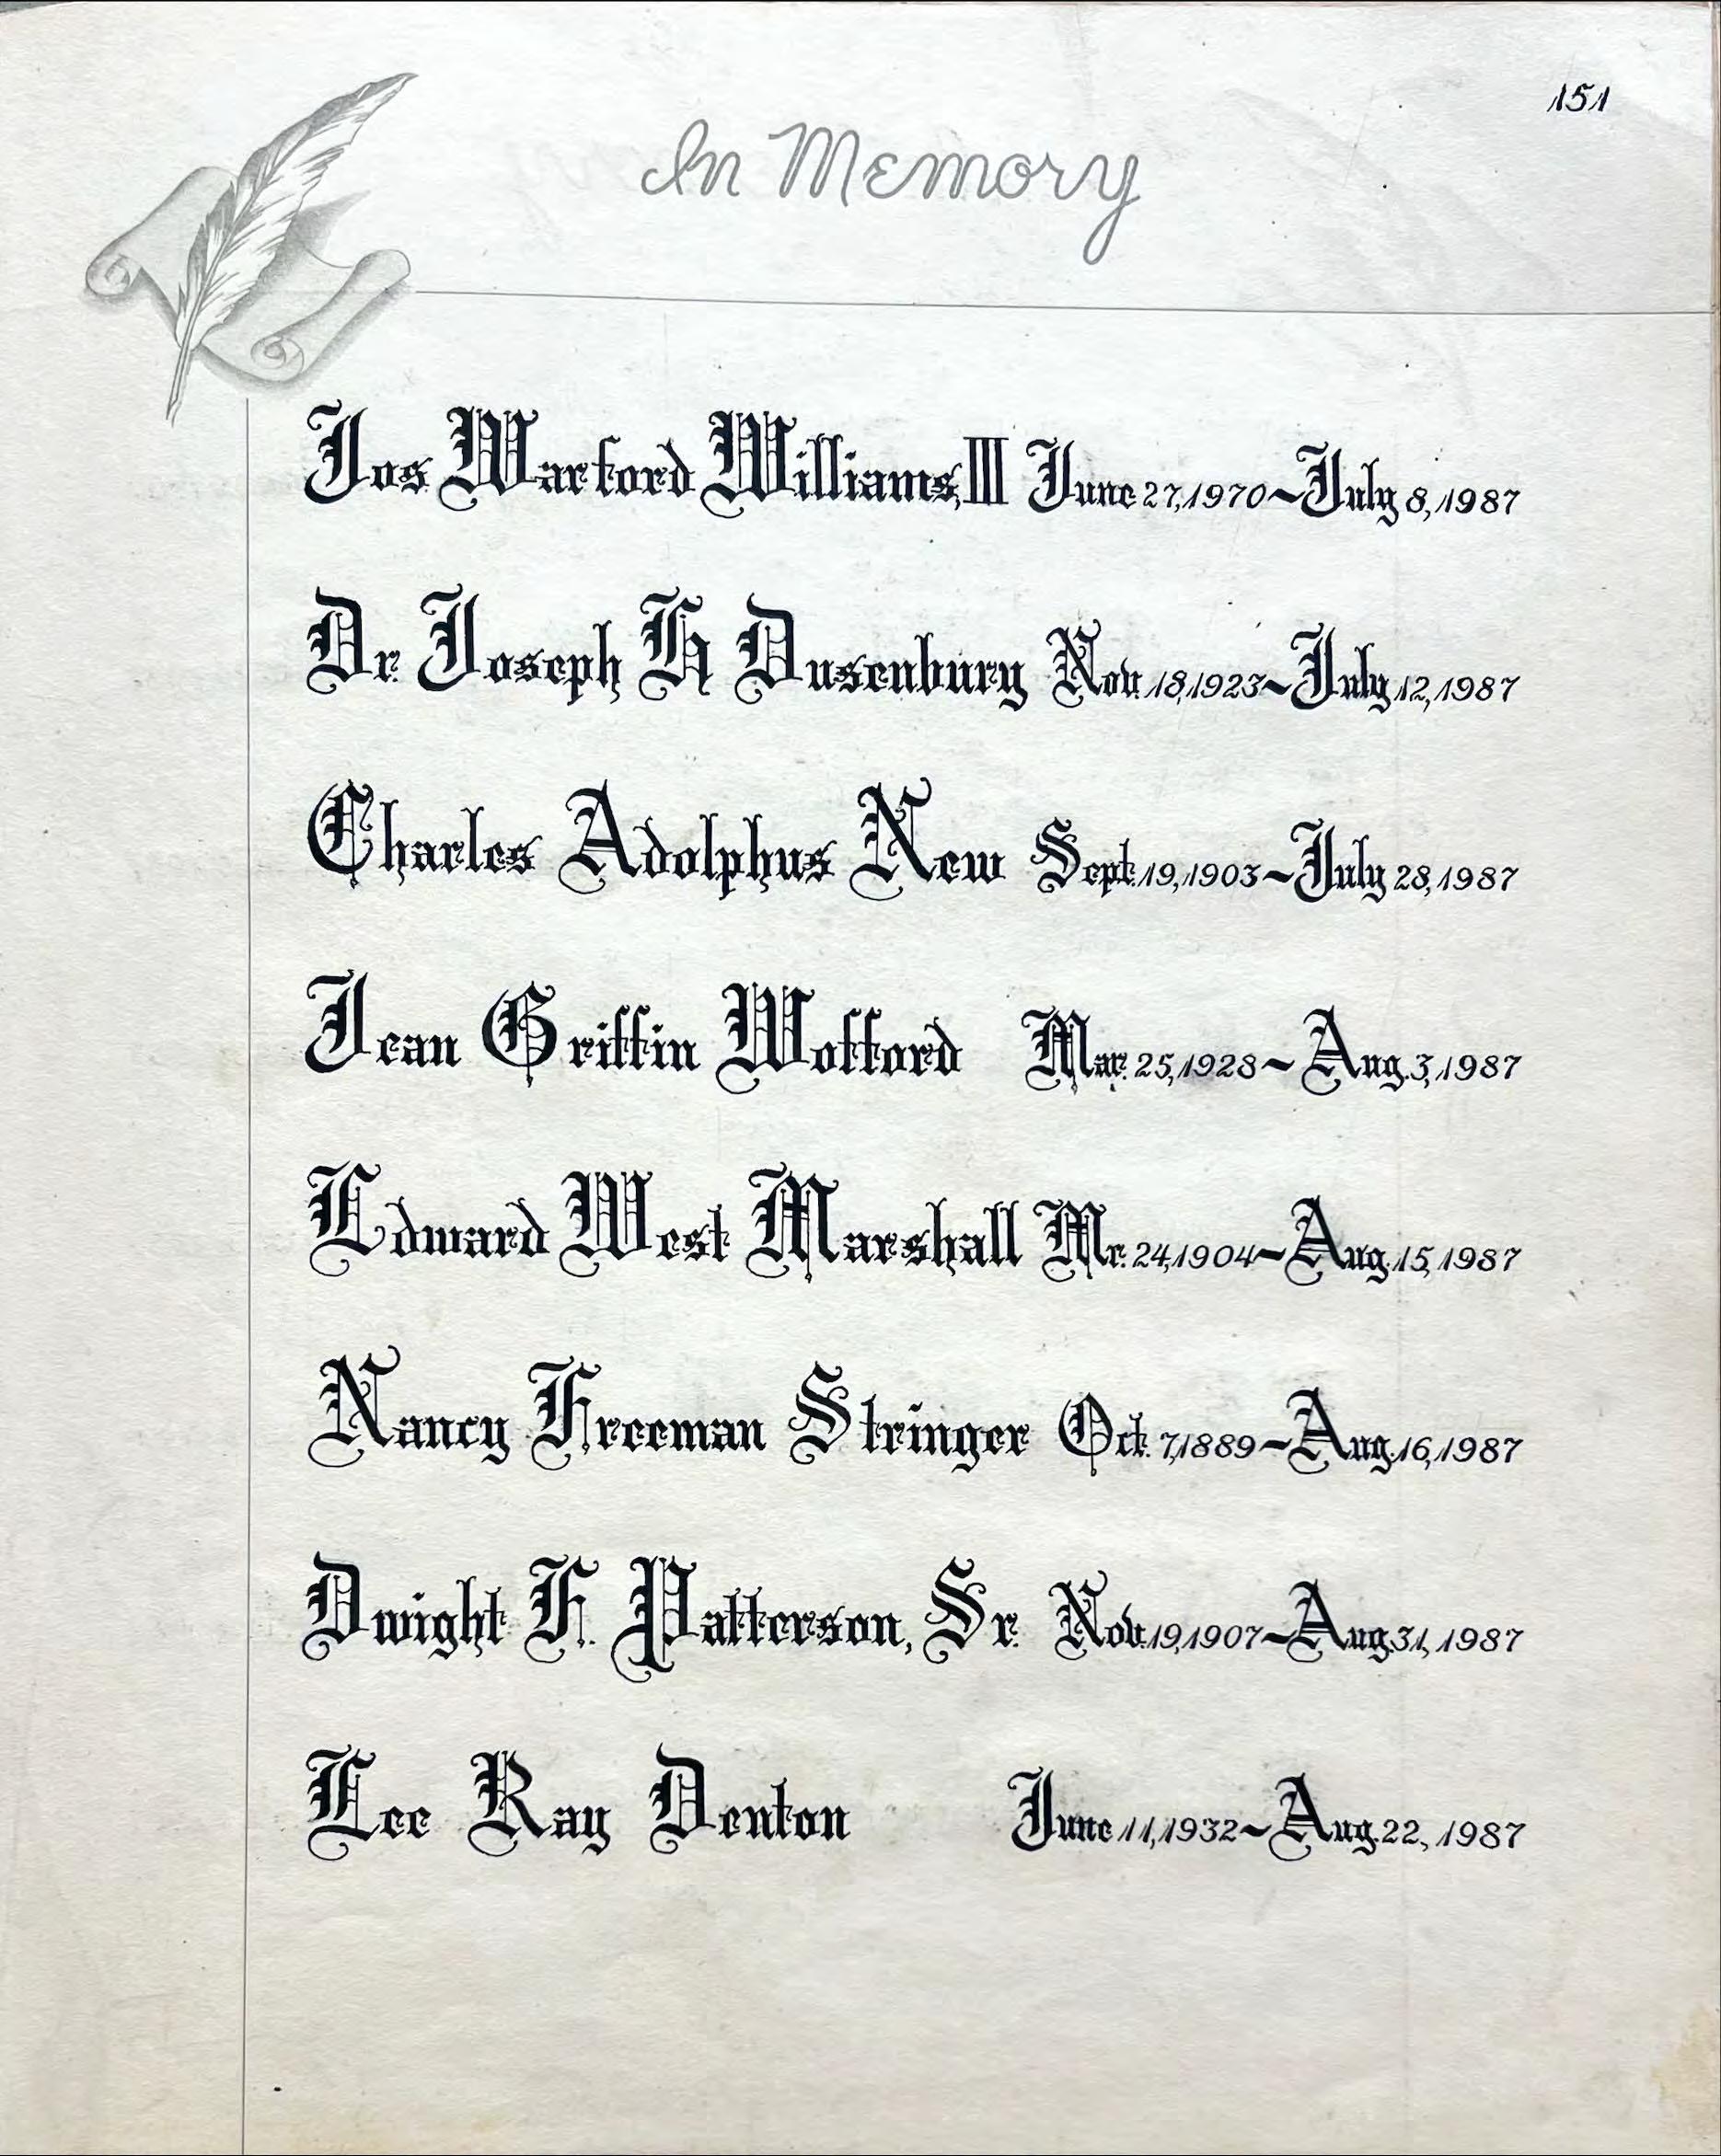 151
In Memory
Jos Warford Williams, III June 27, 1970 ~ July 8, 1987
Dr. Joseph H Dusenbury Nov. 18, 1923 ~ July 12, 1987
Charles Adolphus New Sept. 19, 1903 ~ July 28, 1987
Jean Griffin Wofford Mar. 25, 1928 ~ Aug. 3, 1987
Edward West Marshall Mr. 24, 1904 ~ Aug. 15, 1987
Nancy Freeman Stringer Oct. 7, 1889 ~ Aug. 16, 1987
Dwight F. Patterson, Sr. Nov. 19, 1907 ~ Aug. 31, 1987
Lee Ray Denton June 11, 1932 ~ Aug. 22, 1987